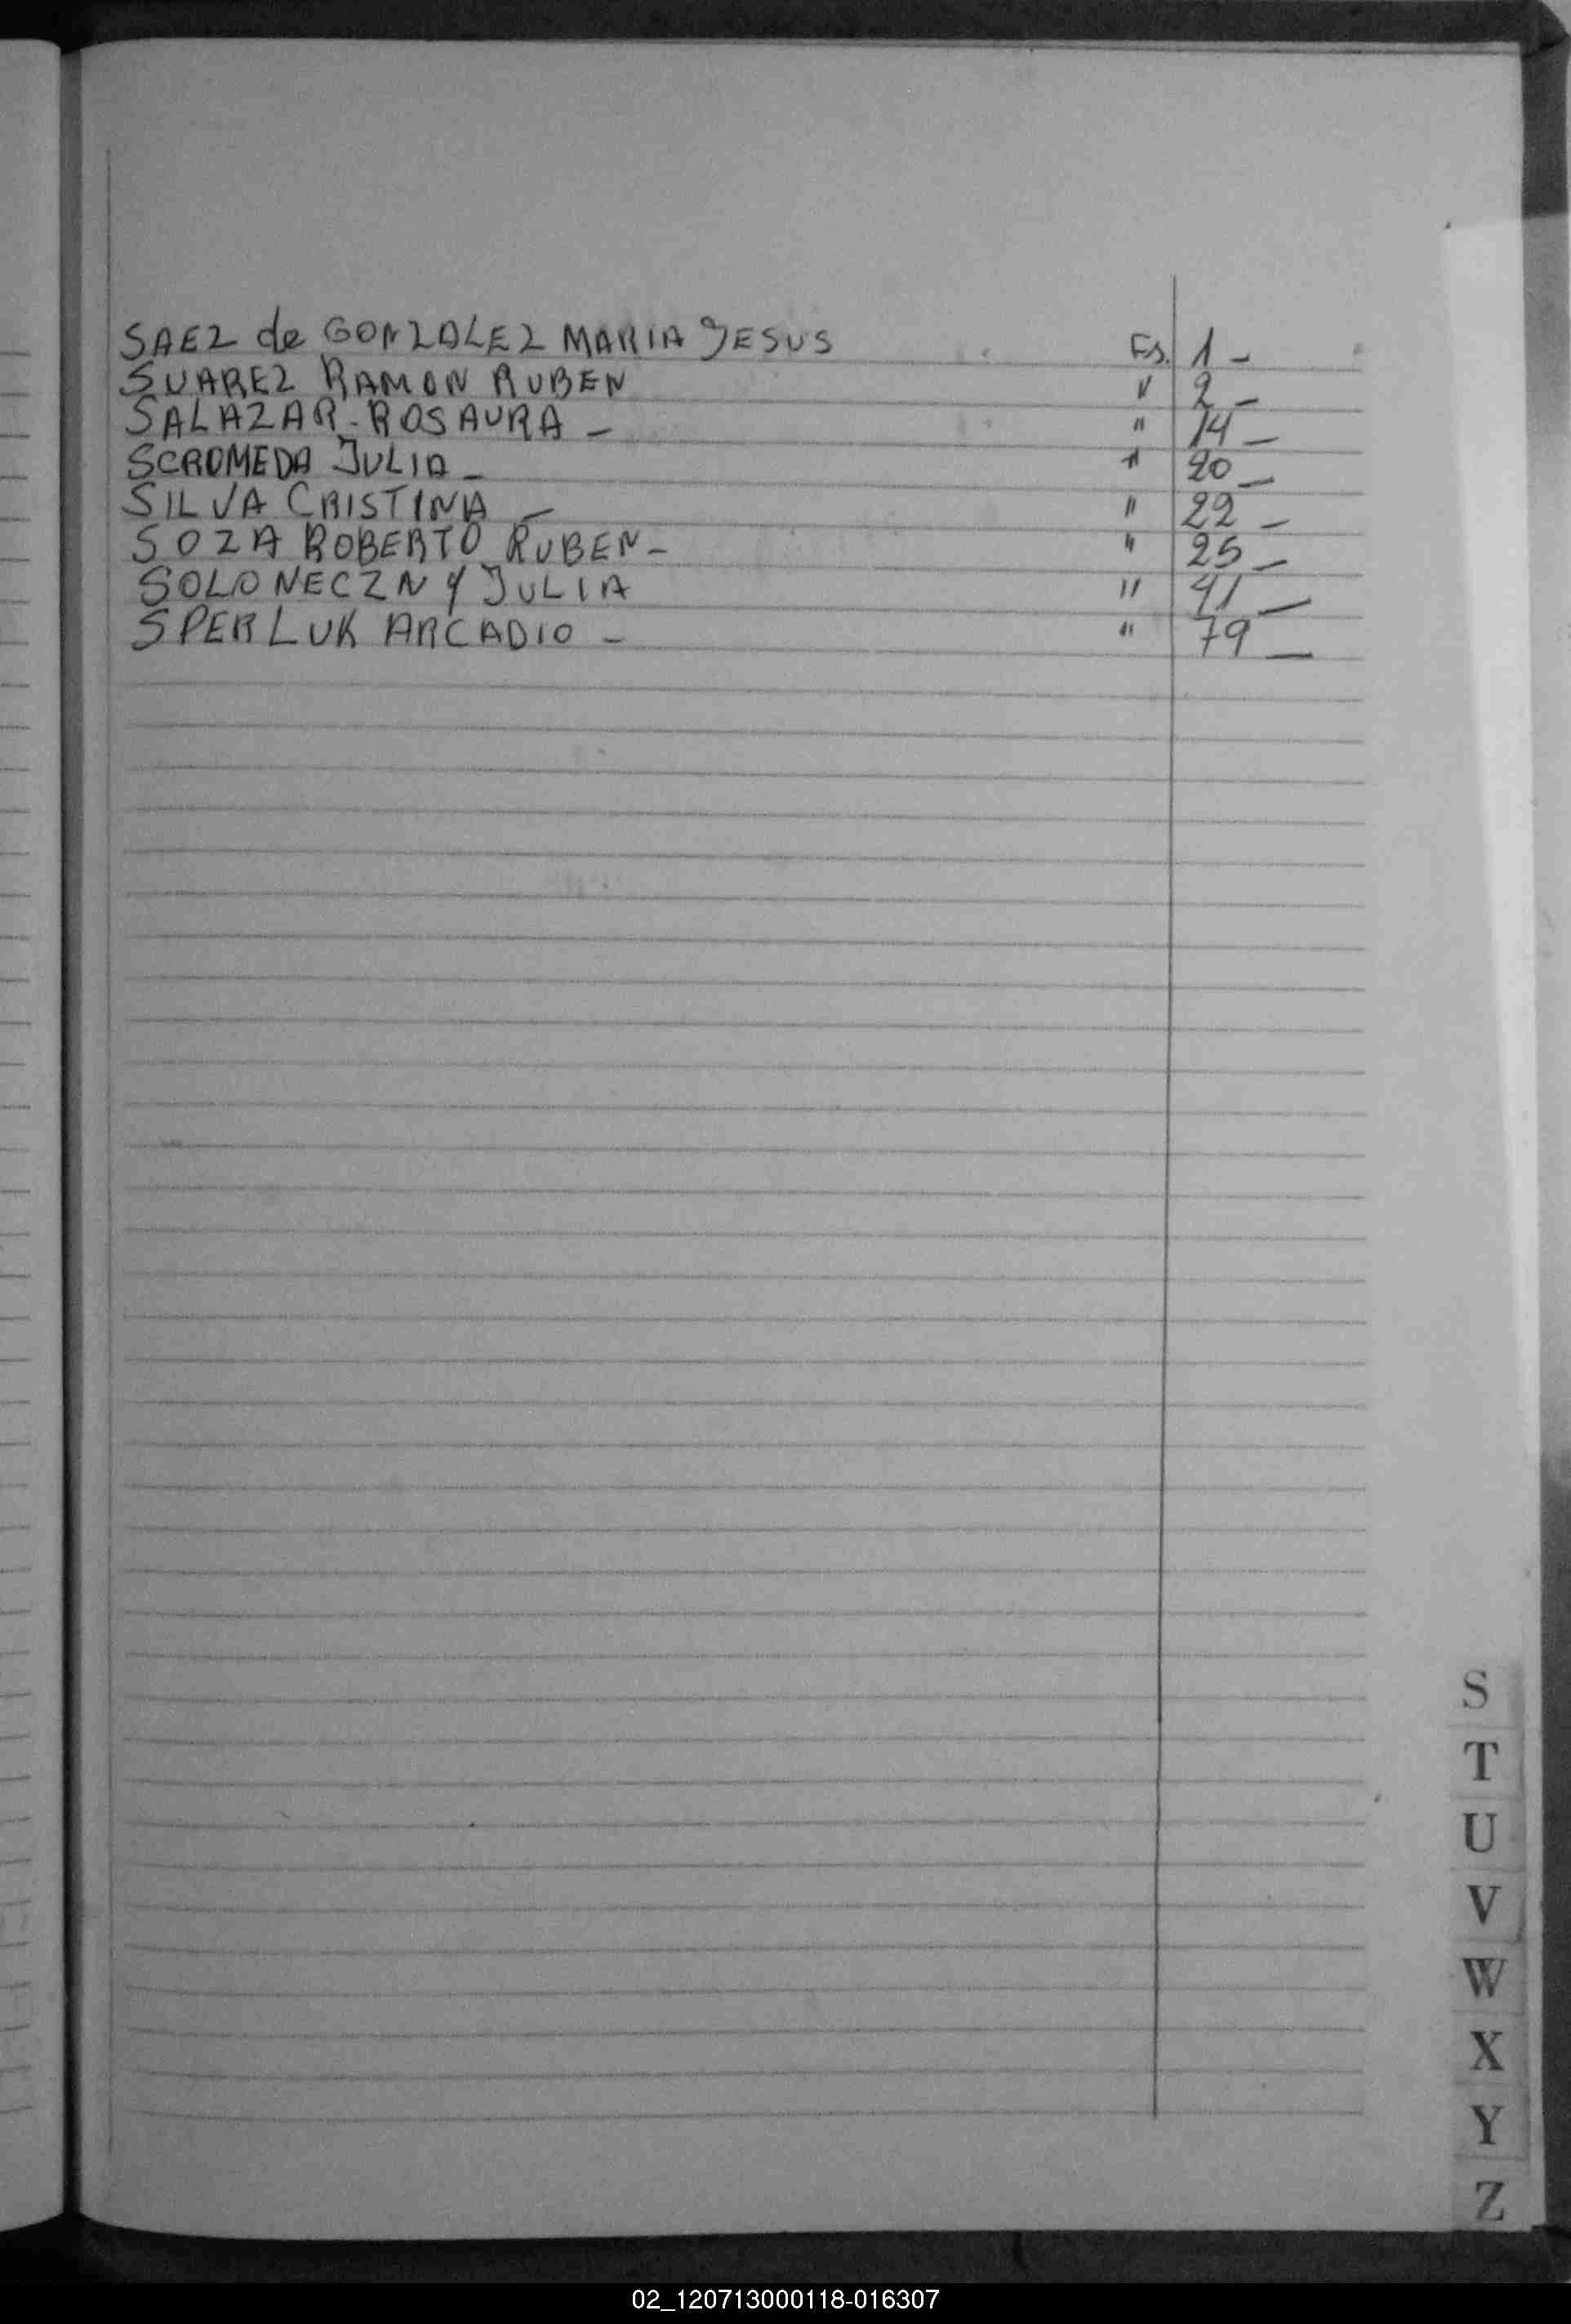 SAEZ de GONZALEZ MARIA JESUS Fs. 1 -
SUAREZ RAMON RUBEN " 2 -
SALAZAR - ROSAURA - " 14 -
SCROMEDA JULIA - " 20 -
SILVA CRISTINA - " 22 -
SOZA ROBERTO RUBEN - " 25 -
SOLONECZNY JULIA " 41 -
SPERLUK ARCADIO - " 79 -
S
T
U
V
W
X
Y
Z
02_120713000118-016307